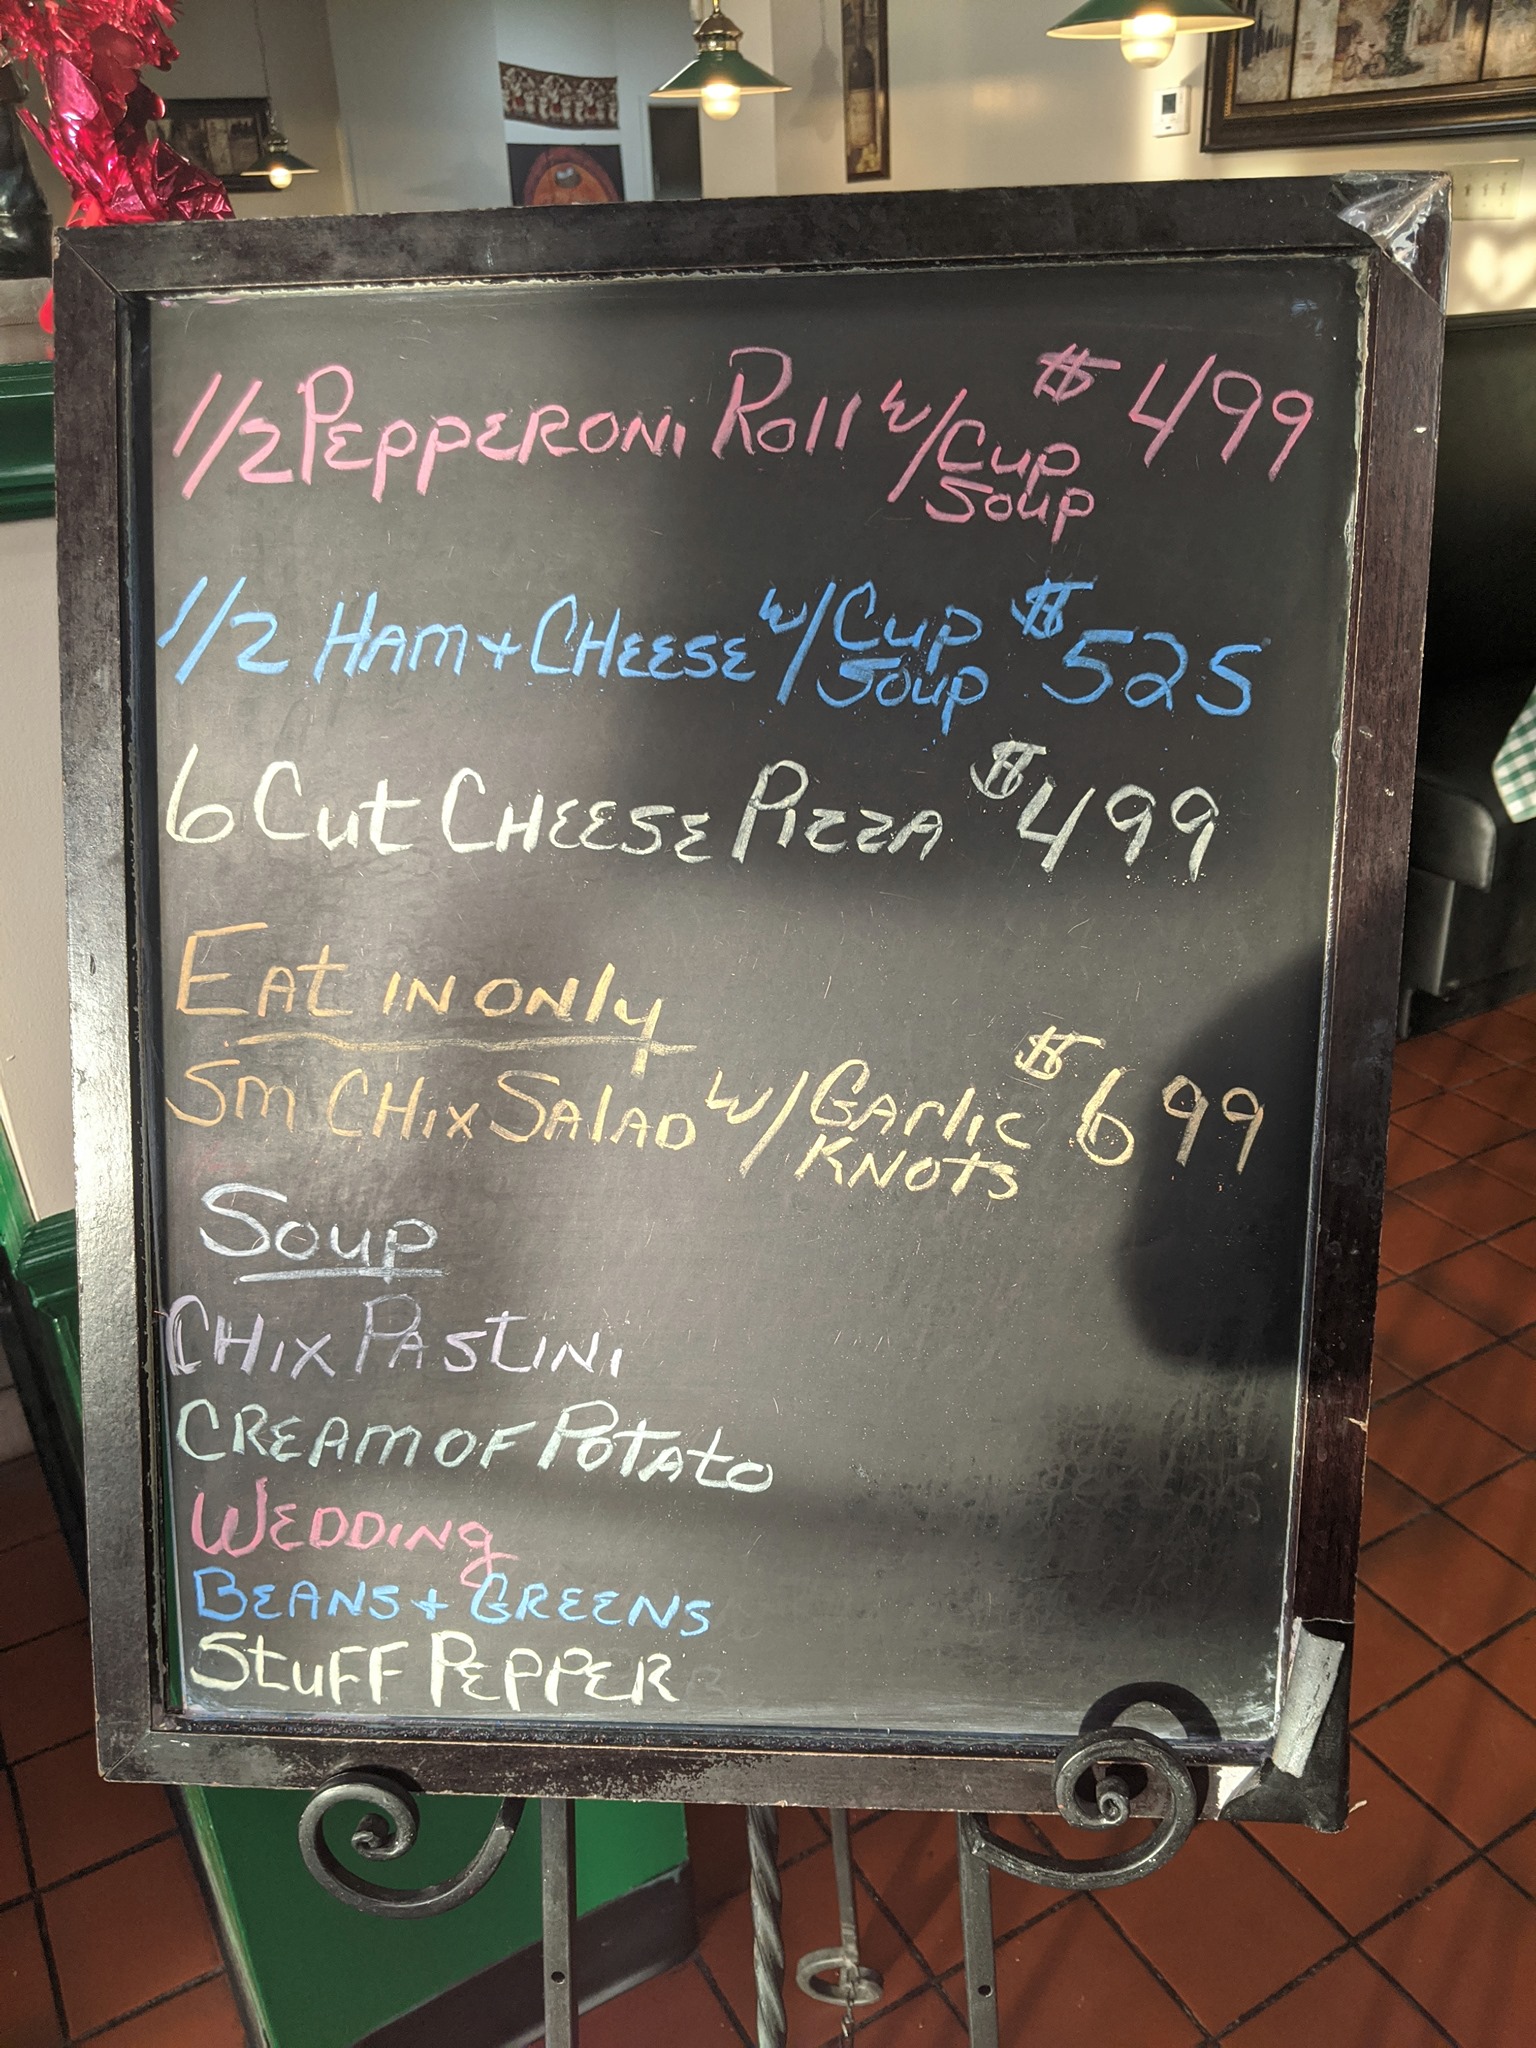 1/2 PEPPERONI Roll w/ Cup Soup $499
1/2 HAM + CHEESE w/ Cup Soup $525
6 Cut CHEESE PIZZA $499
EAt IN ONly
Sm CHix SAlAD w/ GArlic KNOTS $699
Soup
CHix PAStINI
CREAM OF POTATO
WEDDINg
BEANS + GREENS
StuFF PEPPER